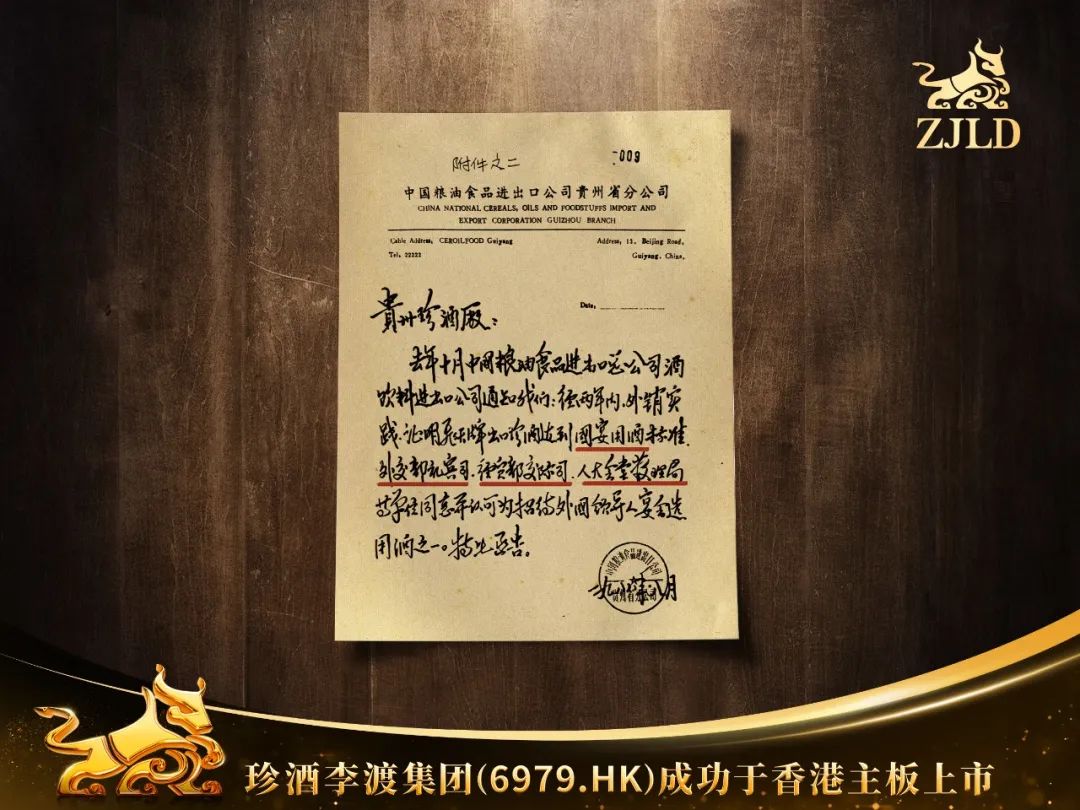 ZJLD
附件之二
009
中国粮油食品进出口公司貴州省分公司
CHINA NATIONAL CEREALS, OILS AND FOODSTUFFS IMPORT AND
EXPORT CORPORATION GUIZHOU BRANCH
Cable Address, CEROILFOOD Guiyang
Address, 11, Beijing Road,
Tel. 22222
Guiyang, China,
Date,
貴州珍酒厰：
去年十月中国粮油食品进出口总公司酒
饮料进出口公司通知我们：经两年内、外销实
践、证明飞天牌出口珍酒达到国宴用酒标准
外交部礼宾司、经贸部交际司、人大会堂管理局
等单位同意并认可为招待外国领导人宴会选
用酒之一。特此函告。
中国粮油食品进出口公司
贵州省分公司
一九八六年八月
珍酒李渡集团(6979.HK)成功于香港主板上市